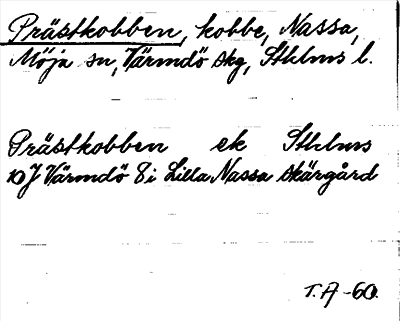 Prästkobben, kobbe, Nassa,
Möja sn, Värmdö skg, Sthlms l.
Prästkobben ek Sthlms
10J Värmdö 8 i Lilla Nassa skärgård
T.A-60.